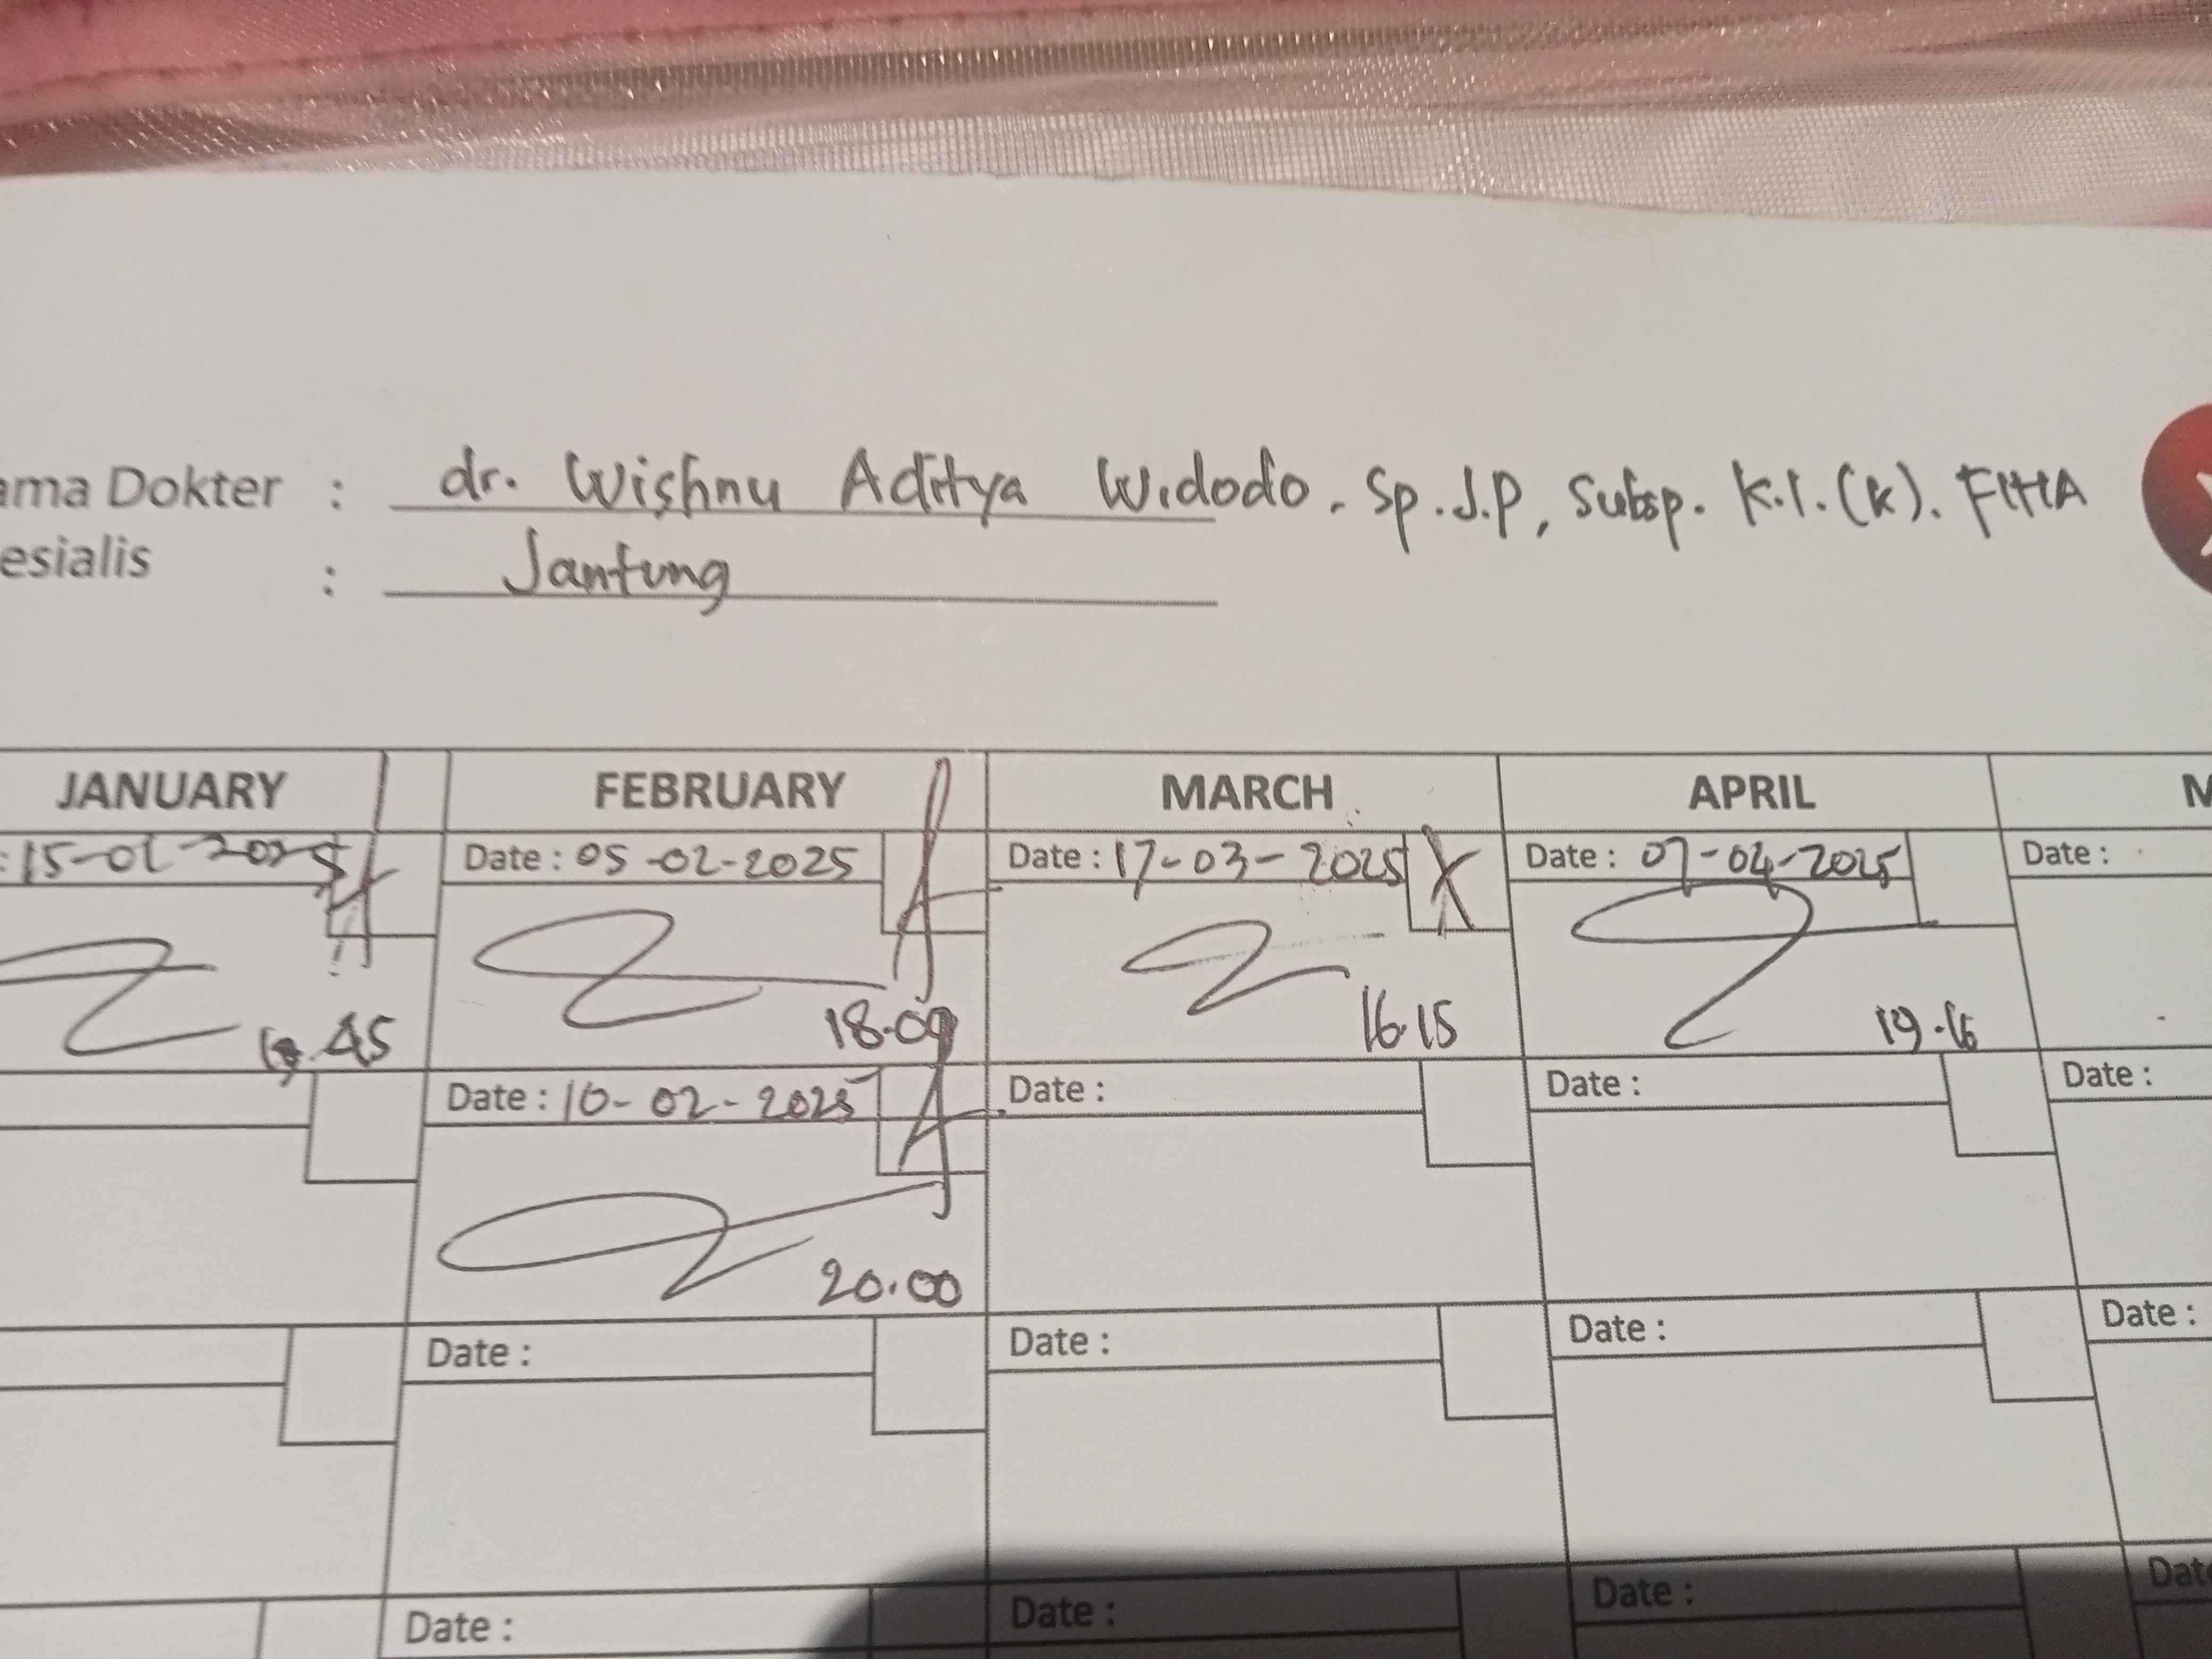 ama Dokter : dr. Wishnu Aditya Widodo. Sp.J.P, Subsp. K.I.(K). FIHA
esialis : Jantung
JANUARY FEBRUARY MARCH APRIL M
: 15-01-2025 Date : 05-02-2025 Date : 17-03-2025 Date : 07-04-2025 Date :
.45 18.09 16.15 19.16
Date : 10-02-2025 Date : Date : Date :
20.00
Date : Date : Date : Date :
Date : Date : Date : Dat